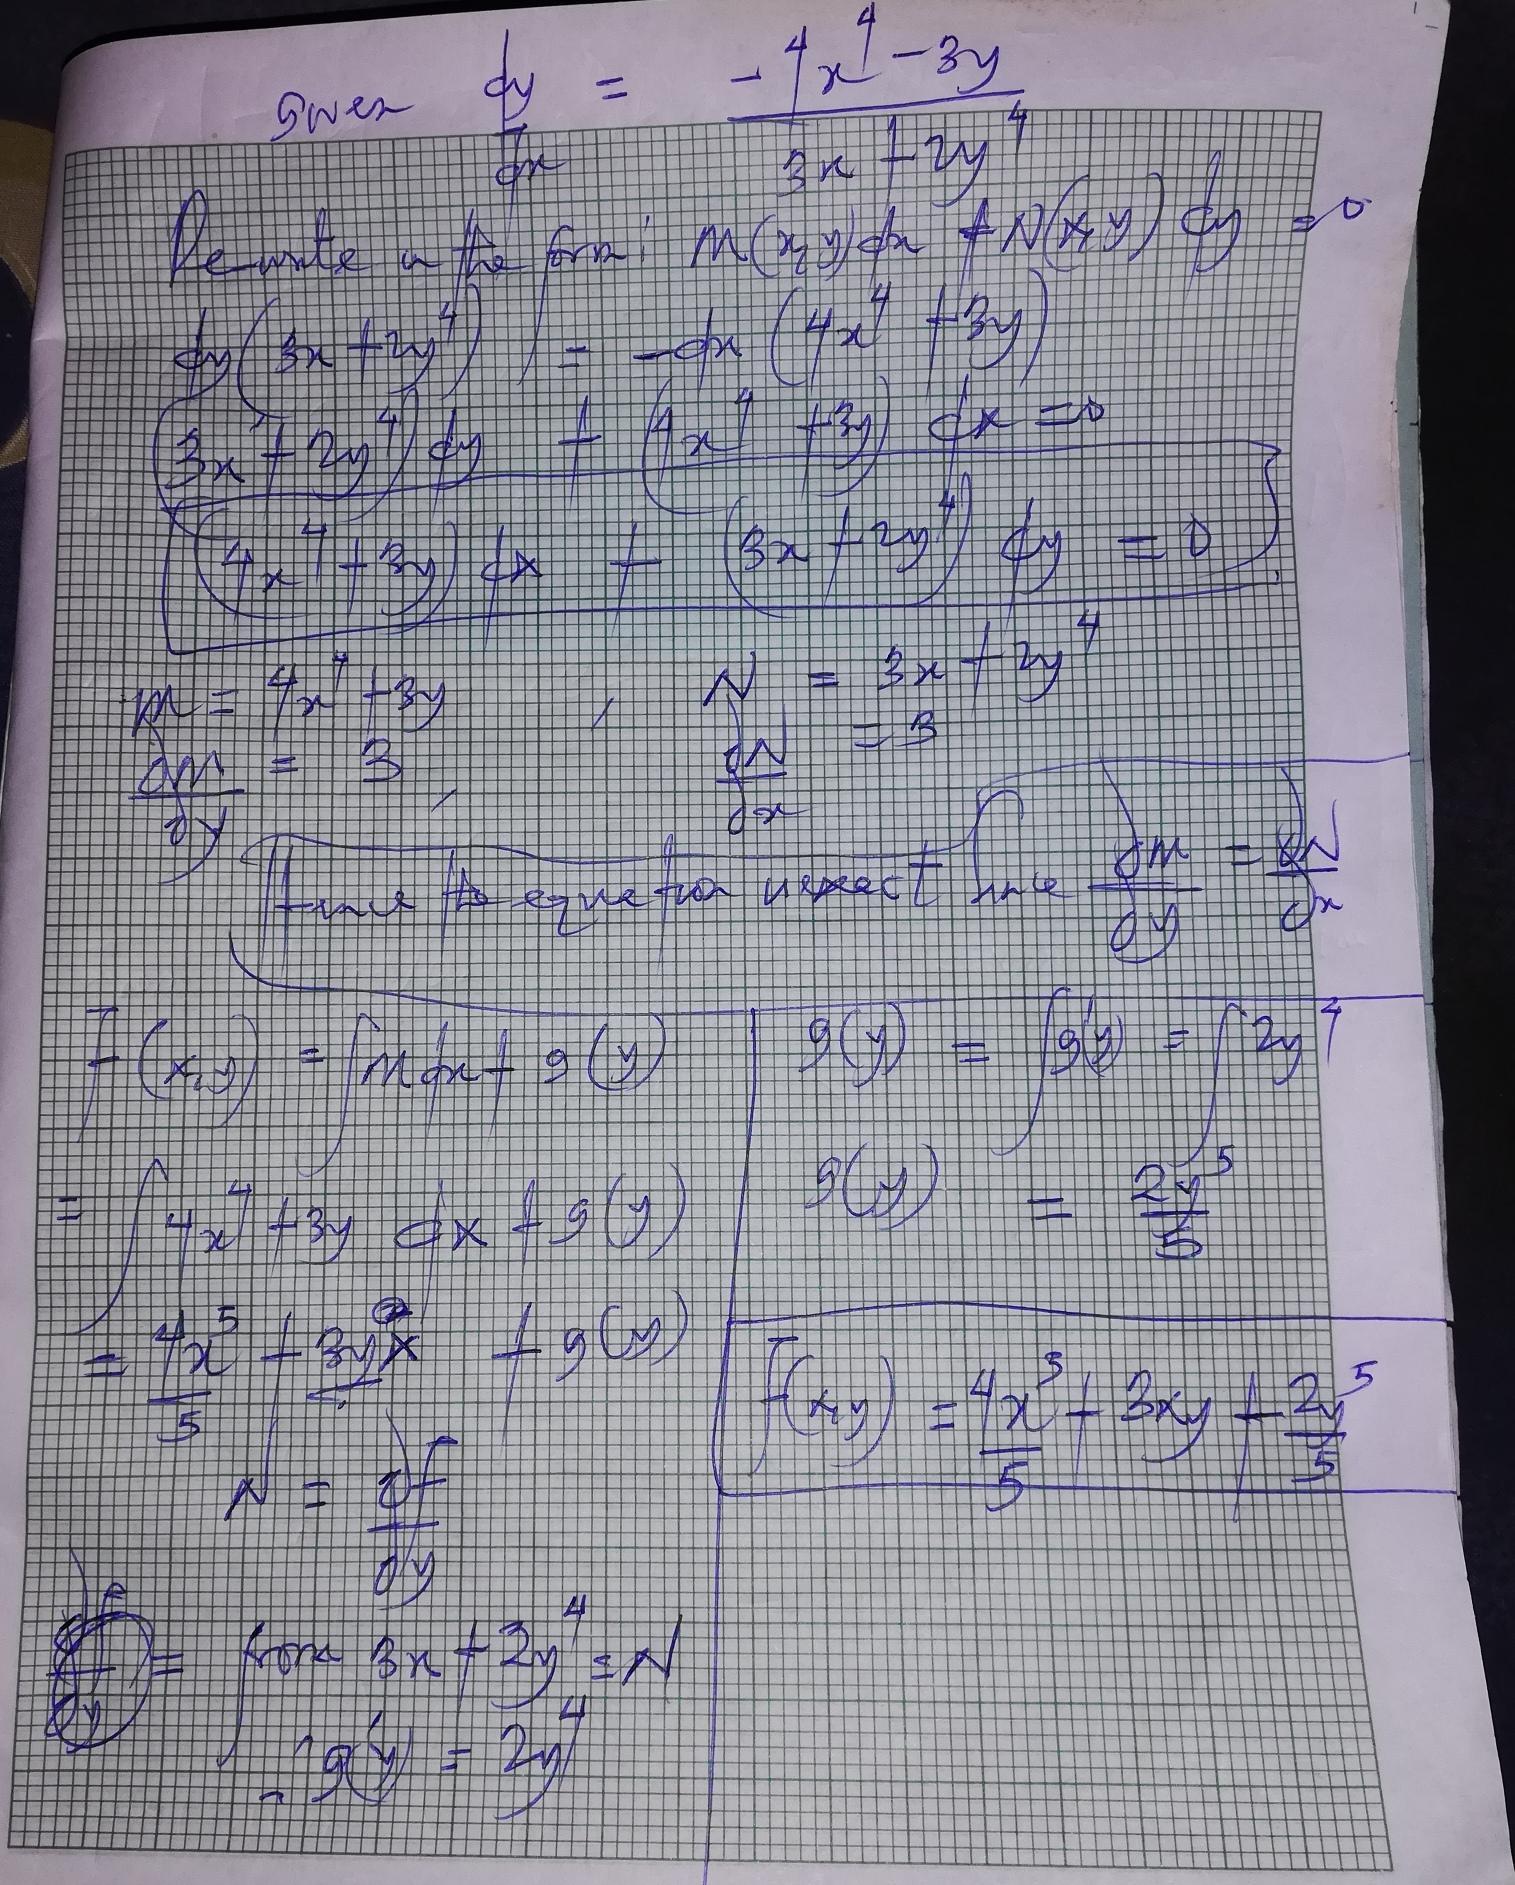 given dy/dx = (-4x^4 - 3y)/(3x + 2y^4)
Rewrite in the form: M(x,y)dx + N(x,y) dy = 0
dy(3x + 2y^4) = -dx (4x^4 + 3y)
(3x + 2y^4) dy + (4x^4 + 3y) dx = 0
(4x^4 + 3y) dx + (3x + 2y^4) dy = 0
M = 4x^4 + 3y , N = 3x + 2y^4
∂M/∂y = 3 , ∂N/∂x = 3
Hence the equation is exact since ∂M/∂y = ∂N/∂x
F(x,y) = ∫M dx + g(y)
= ∫4x^4 + 3y dx + g(y)
= 4x^5/5 + 3yx + g(y)
N = ∂F/∂y
= from 3x + 2y^4 = N
g'(y) = 2y^4
g(y) = ∫g'(y) = ∫2y^4
g(y) = 2y^5/5
F(x,y) = 4x^5/5 + 3xy + 2y^5/5